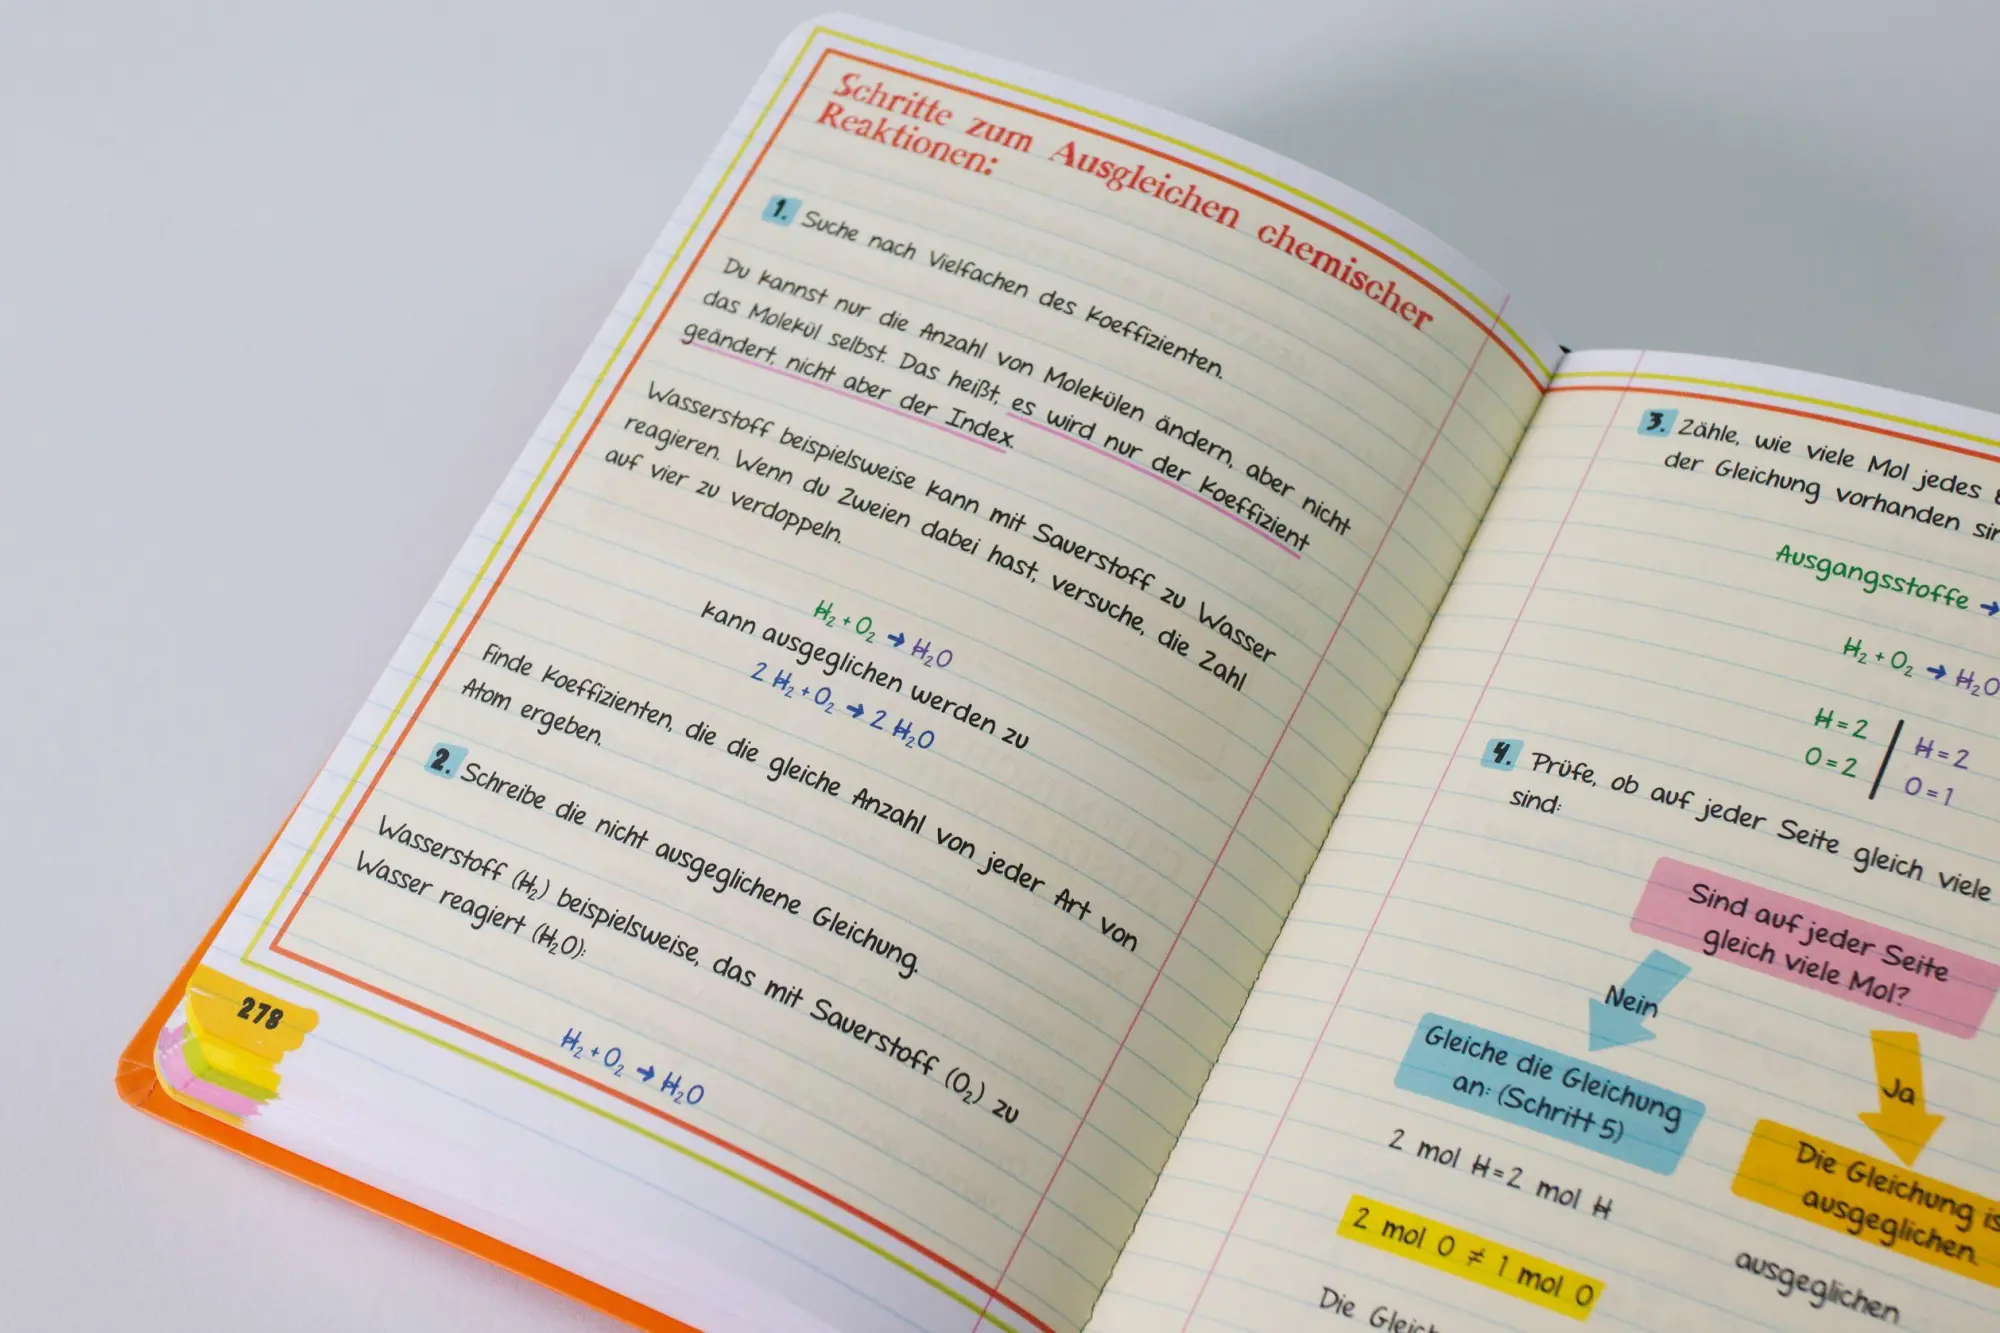 Schritte zum Ausgleichen chemischer
Reaktionen:
1. Suche nach Vielfachen des Koeffizienten.
Du kannst nur die Anzahl von Molekülen ändern, aber nicht
das Molekül selbst. Das heißt, es wird nur der Koeffizient
geändert, nicht aber der Index.
Wasserstoff beispielsweise kann mit Sauerstoff zu Wasser
reagieren. Wenn du Zweien dabei hast, versuche, die Zahl
auf vier zu verdoppeln.
H₂ + O₂ → H₂O
kann ausgeglichen werden zu
2 H₂ + O₂ → 2 H₂O
Finde Koeffizienten, die die gleiche Anzahl von jeder Art von
Atom ergeben.
2. Schreibe die nicht ausgeglichene Gleichung.
Wasserstoff (H₂) beispielsweise, das mit Sauerstoff (O₂) zu
Wasser reagiert (H₂O):
H₂ + O₂ → H₂O
278
3. Zähle, wie viele Mol jedes
der Gleichung vorhanden
Ausgangsstoffe →
H₂ + O₂ → H₂O
H = 2 | H = 2
O = 2 | O = 1
4. Prüfe, ob auf jeder Seite gleich viele
sind:
Sind auf jeder Seite
gleich viele Mol?
Nein
Gleiche die Gleichung
an: (Schritt 5)
2 mol H = 2 mol H
2 mol O ≠ 1 mol O
Die
Ja
Die Gleichung
ausgeglichen.
ausgeglichen